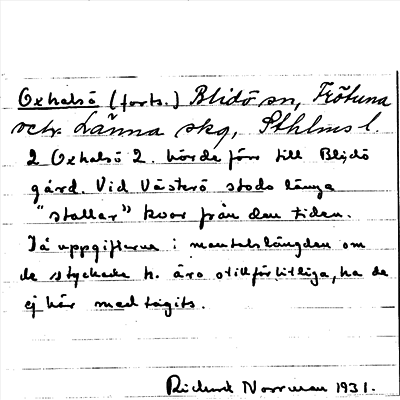 Oxhalsö (forts.) Blidö sn, Frötuna
och Länna skg, Sthlms l.
2 Oxhalsö 2. hörde förr till Blidö
gård. Vid Västerö stodo länga
"stallar" kvar från den tiden.
Då uppgifterna i mantalslängden om
de styckade h. äro otillförlitliga, ha de
ej här medtagits.
Rickard Norrman 1931.